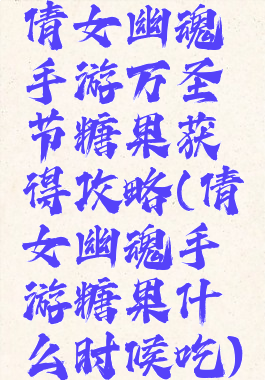 倩女幽魂
手游万圣
节糖果获
得攻略(倩
女幽魂手
游糖果什
么时候吃)